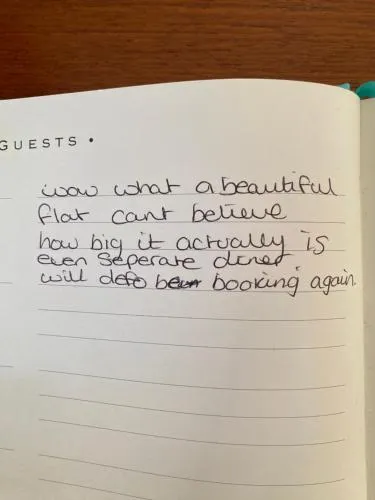 GUESTS •
wow what a beautiful
flat cant believe
how big it actually is
even seperate
will defo be booking again.